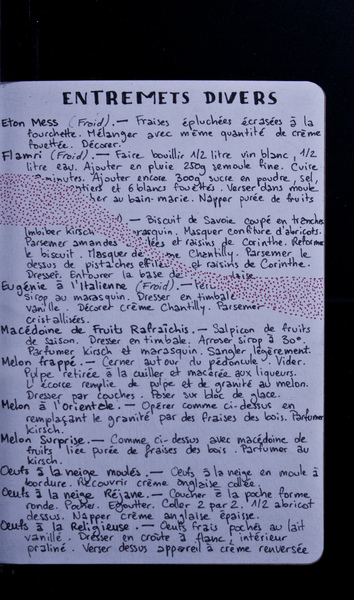 ENTREMETS DIVERS
Eton Mess (Froid).— Fraises épluchées écrasées à la
fourchette. Mélanger avec même quantité de crème
fouettée. Décorer.
Flamri (Froid).— Faire bouillir 1/2 litre vin blanc, 1/2
litre eau. Ajouter en pluie 250g semoule fine. Cuire
minutes. Ajouter encore 300g sucre en poudre, sel,
entiers et 6 blancs fouettés. Verser dans moule
her au bain-marie. Napper purée de fruits
).— Biscuit de Savoie coupé en tranches
Imbiber kirsch rasquin. Masquer confiture d'abricots.
Parsemer amandes lées et raisins de Corinthe. Reforme
le biscuit. Masquer de me Chantilly. Parsemer le
dessus de pistaches effilé et raisins de Corinthe.
Dresser. Entourer la base de laise.
Eugénie à l'Italienne (Froid).—
sirop au marasquin. Dresser en timbale
vanille. Décoré crème Chantilly. Parsemer
cristallisées.
Macédoine de Fruits Rafraîchis.— Salpicon de fruits
de saison. Dresser en timbale. Arroser sirop à 30°.
Parfumer kirsch et marasquin. Sangler légèrement.
Melon frappé.— Cerner autour du pédoncule. Vider.
Pulpe retirée à la cuiller et macérée aux liqueurs.
L'écorce remplie de pulpe et de granité au melon.
Dresser par couches. Poser sur bloc de glace.
Melon à l'Orientale.— Opérer comme ci-dessus en
remplaçant le granité par des fraises des bois. Parfumer
kirsch.
Melon Surprise.— Comme ci-dessus avec macédoine de
fruits liée purée de fraises des bois. Parfumer au
kirsch.
Oeufs à la neige moulés.— Oeufs à la neige en moule à
bordure. Recouvrir crème anglaise collée.
Oeufs à la neige Réjane.— Coucher à la poche forme
ronde. Pocher. Egoutter. Coller 2 par 2. 1/2 abricot
dessus. Napper crème anglaise épaisse.
Oeufs à la Religieuse.— Oeufs frais pochés au lait
vanillé. Dresser en croûte à flanc, intérieur
praliné. Verser dessus appareil à crème renversée